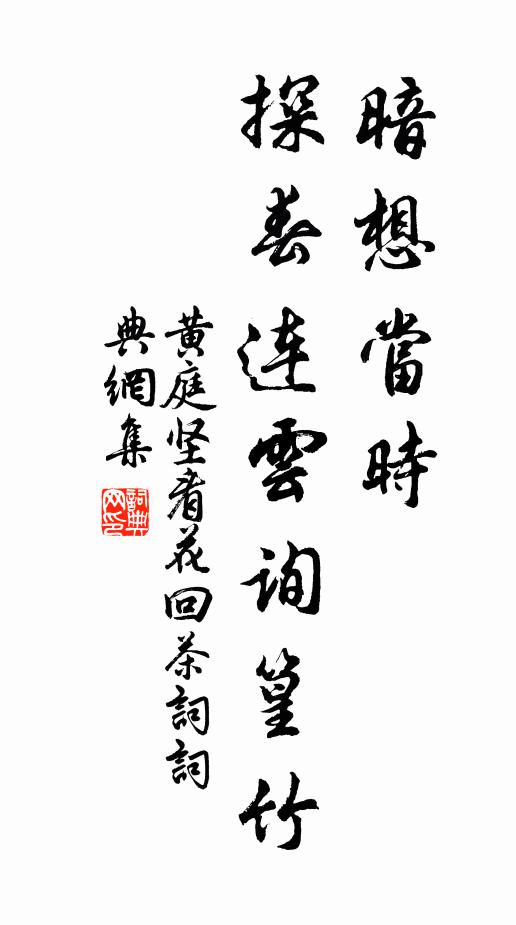 暗想當時
探春連雲詢篁竹
黄庭坚看花回茶詞詞
典網集
詞典
网印